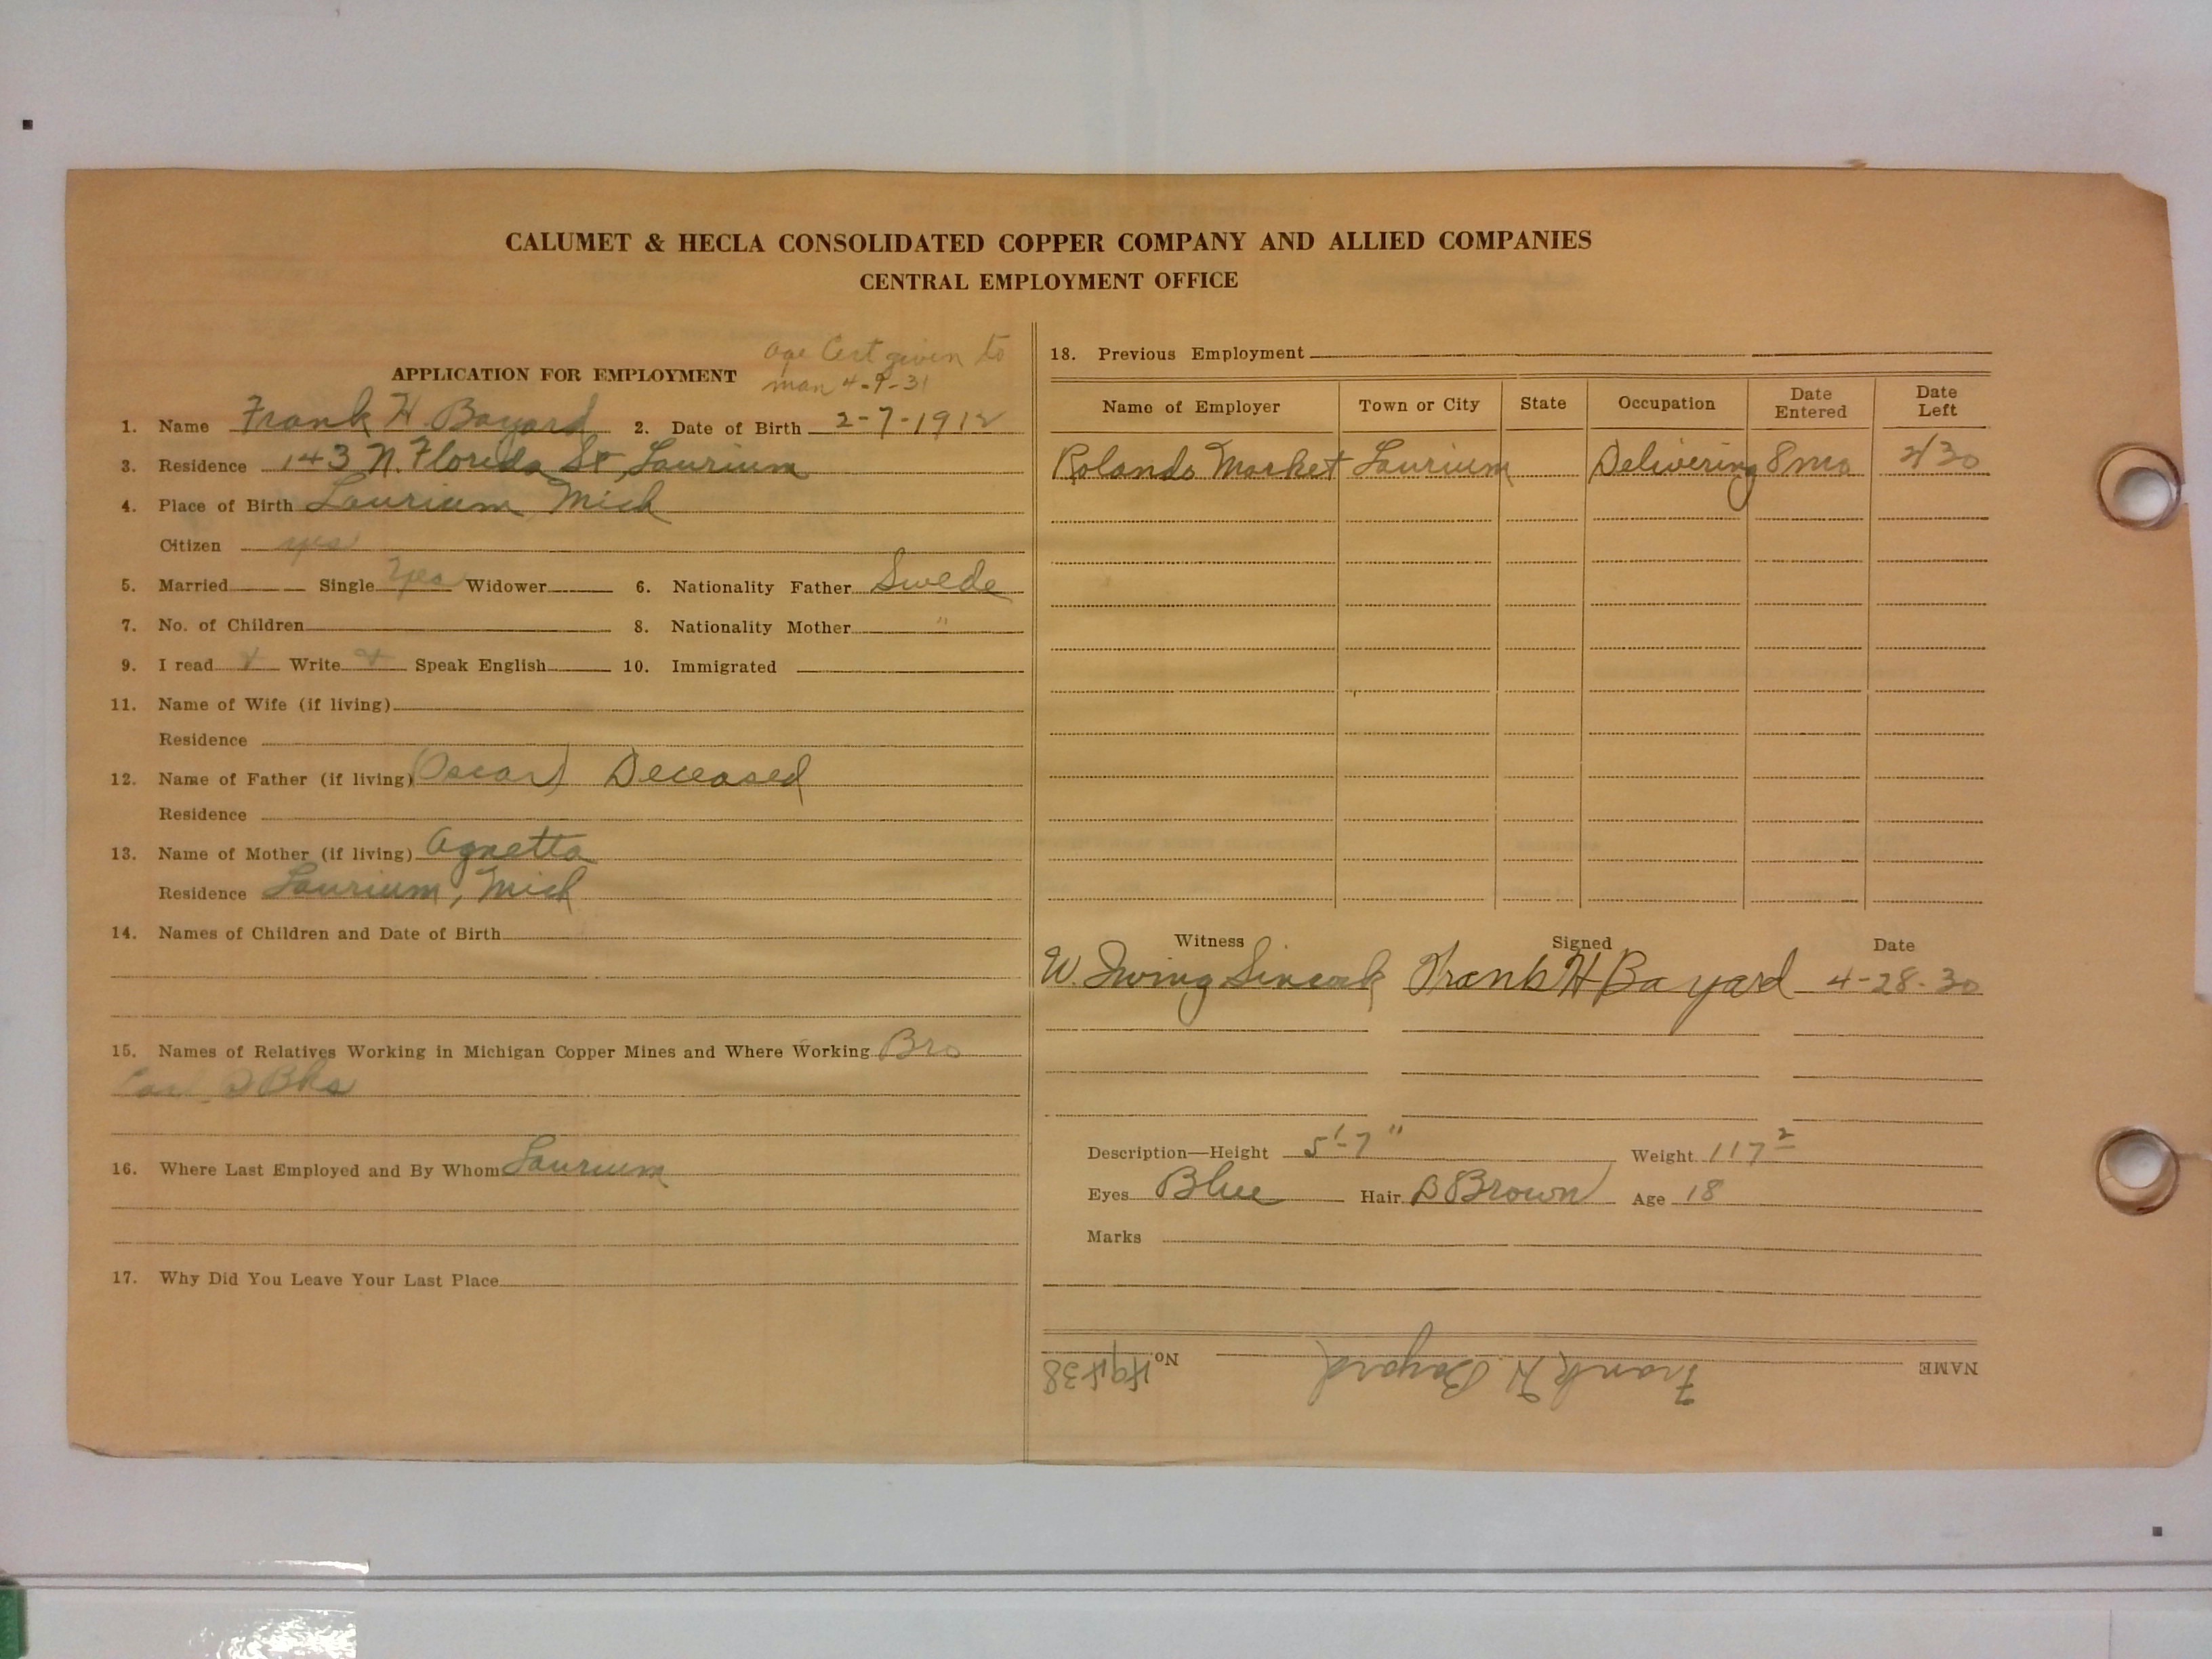 CALUMET & HECLA CONSOLIDATED COPPER COMPANY AND ALLIED COMPANIES
CENTRAL EMPLOYMENT OFFICE
Age Cert given to
man 4-9-31
APPLICATION FOR EMPLOYMENT
1. Name Frank H. Bayard 2. Date of Birth 2-7-1912
3. Residence 143 N. Florida St, Laurium
4. Place of Birth Laurium Mich
Citizen yes
5. Married Single Yes Widower 6. Nationality Father Swede
7. No. of Children 8. Nationality Mother "
9. I read Write Speak English 10. Immigrated
11. Name of Wife (if living)
Residence
12. Name of Father (if living) (Oscar) Deceased
Residence
13. Name of Mother (if living) Agnetta
Residence Laurium, Mich
14. Names of Children and Date of Birth
15. Names of Relatives Working in Michigan Copper Mines and Where Working Bro
16. Where Last Employed and By Whom Laurium
17. Why Did You Leave Your Last Place
18. Previous Employment
Name of Employer Town or City State Occupation Date Entered Date Left
Rolands Market Laurium Delivering 8 mo 2/30
Witness Signed Date
W. Irving Sincock Frank H Bayard 4-28-30
Description—Height 5'-7" Weight 117
Eyes Blue Hair D Brown Age 18
Marks
NAME Frank H. Bayard No.